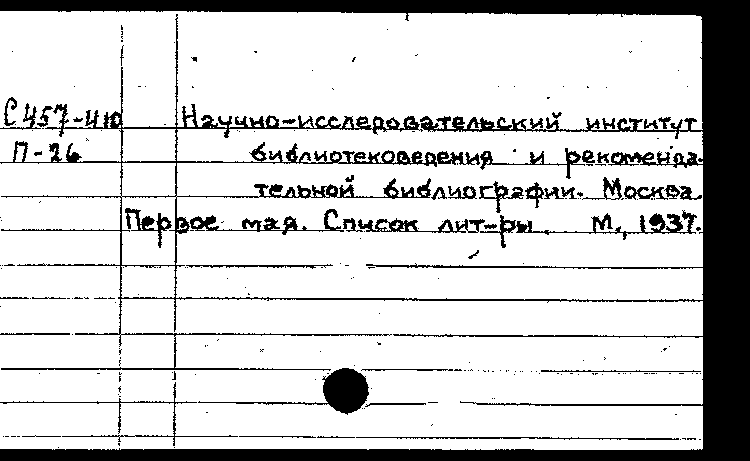 С 457-410 Научно-исследовательский институт
П-26 библиотековедения и рекоменда-
тельной библиографии. Москва.
Первое мая. Список лит-ры. М., 1937.